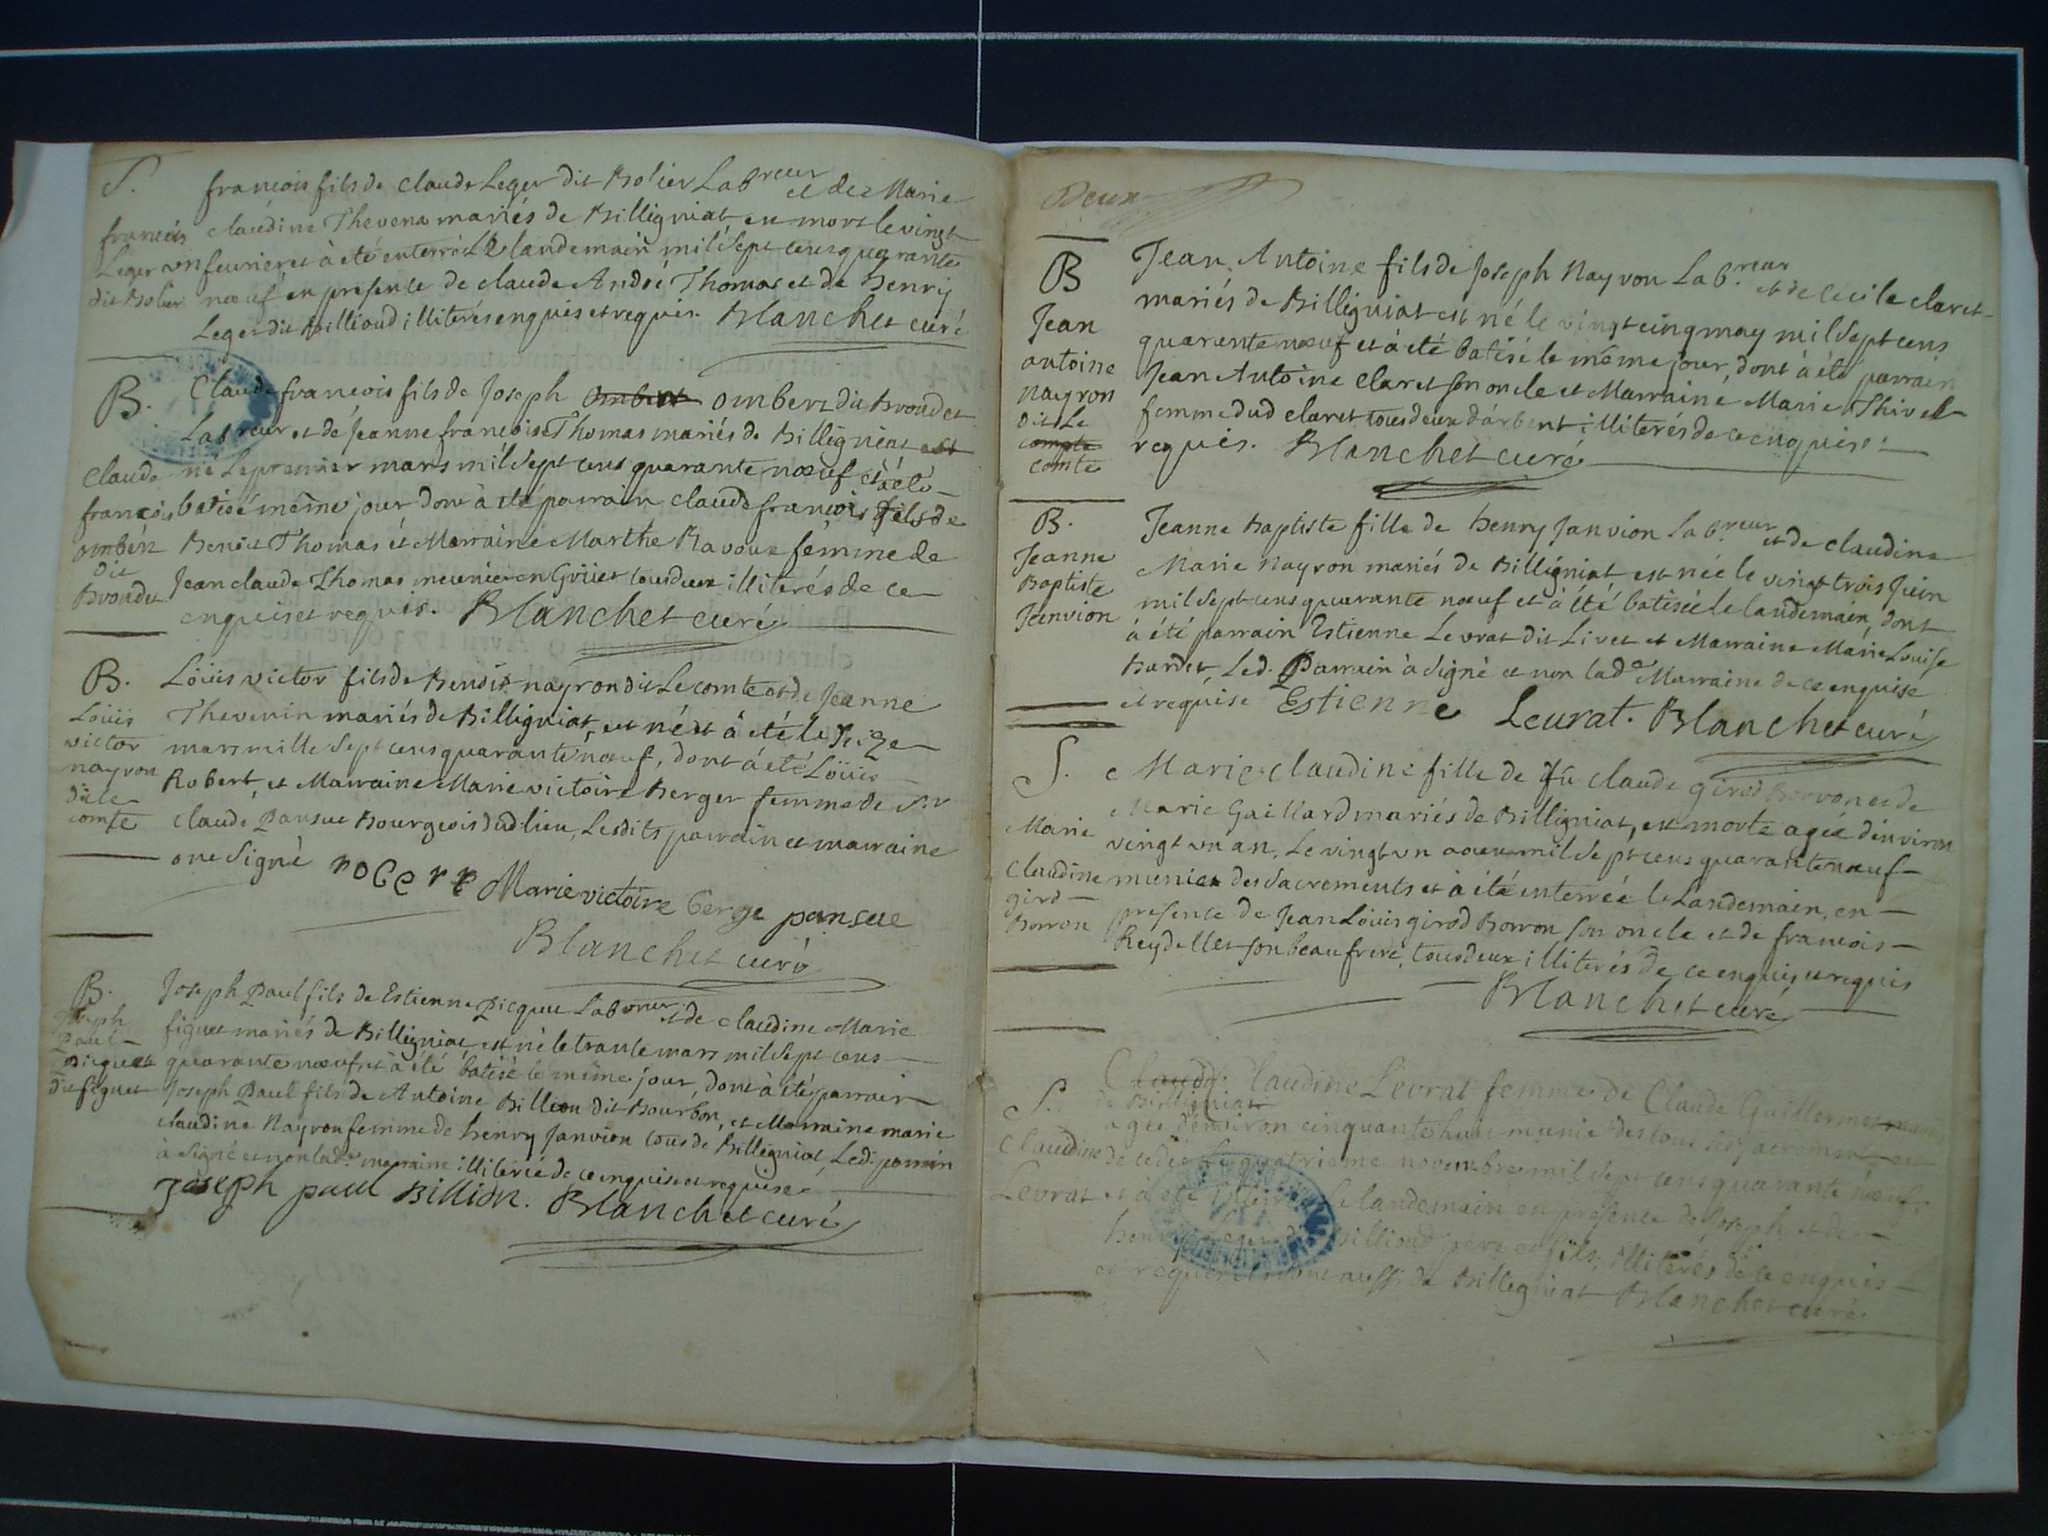 S.
francois fils de claude Leger dit Bolier Labreur et de Marie
francois claudine Thevena mariés de Billigniat est mort le vingt
Leger un feuvrier et à été enterré Le landemain mil Sept cens quarante
dit Bolier nœuf en presente de claude André Thomas et de henry
Leger dit Billioud illiterés enquis et requis. Blanchet curé
B. Claude francois fils de Joseph Ombert ombert dit Brondet
Labreur et de Jeanne francoise Thomas mariés de Billigniat est
Claude né Le premier mars mil Sept cens quarante nœuf et à été
francois batisé même jour dont à été parrain claude francois fils de
ombert Benoit Thomas et Marraine Marthe Ravoux femme de
dit
Brondet Jean claude Thomas meunier en Grüet tous deux illiterés de ce
enquis et requis. Blanchet curé
B. Loüis victor fils de Benoit nayron dit Le comte et de Jeanne
Loüis Thevenin mariés de Billigniat, est né et à été le
victor mars mille Sept cens quarante nœuf, dont à été Loüis
nayron Robert, et Marraine Marie victoire Berger femme de Sr
dit le
comte claude Pansue Bourgeois dud. lieu, Lesdits parrain et marraine
ont Signé robert Marie victoire berge pansue
Blanchet curé
B. Joseph Paul fils de Estienne Picquet Laboreur et de claudine Marie
Joseph figuet mariés de Billigniat est né le trante mars mil Sept cens
Paul
Picquet quarante nœuf et à été batisé le même jour, dont à été parrain
dit figuet Joseph Paul fils de Antoine Billion dit Bourbon, et Marraine marie
claudine Nayron femme de henry Janvion tous de Billigniat, Led. parrain
à Signé et non lad. marraine illiterée de ce enquise et requise
joseph paul Billion. Blanchet curé
Deux
B Jean Antoine fils de Joseph Nayron Lab.reur et de Cecile claret
Jean mariés de Billigniat est né le vingt cinq may mil Sept cens
antoine quarante nœuf et à été batisé le même jour, dont à été parrain
nayron Jean Antoine Claret son oncle et Marraine Marie Thivel
dit Le femme dud claret tous deux d'arbent illiterés de ce enquis et
compte requis. Blanchet curé
comte
B. Jeanne Baptiste fille de henry Janvion Lab.reur et de claudine
Jeanne Marie Nayron mariés de Billigniat, est née le vingt trois Juin
Baptiste mil Sept cens quarante nœuf et à été batisée le landemain, dont
Janvion à été parrain Estienne Levrat dit Livet et Marraine Marie Louise
Bardet, Led. Parrain à Signé et non lad.e Marraine de ce enquise
et requise Estienne Leurat. Blanchet curé
S. Marie claudine fille de fü claude girod Borron et de
Marie Gaillard mariés de Billigniat, est morte agée d'environ
Marie vingt un an, Le vingt un aoust mil Sept cens quarante nœuf
Claudine munier des Sacrements et à été enterrée le Landemain, en
girod presente de Jean Loüis girod Borron son oncle et de francois
Borron Reydellet son beaufrere, tous deux illiterés de ce enquis et requis
Blanchet curé
Claud. Claudine Levrat femme de Claude Guillermet
S. de Billigniat
agée denviron cinquante huit munie des tous
Claudine de cedée Le quatrieme novembre mil Sept cens quarante nœuf,
Levrat et à été Le landemain en presente de Joseph et de
Billioud pere et fils, illiterés de ce enquis
et requis aussi de Billigniat Blanchet curé